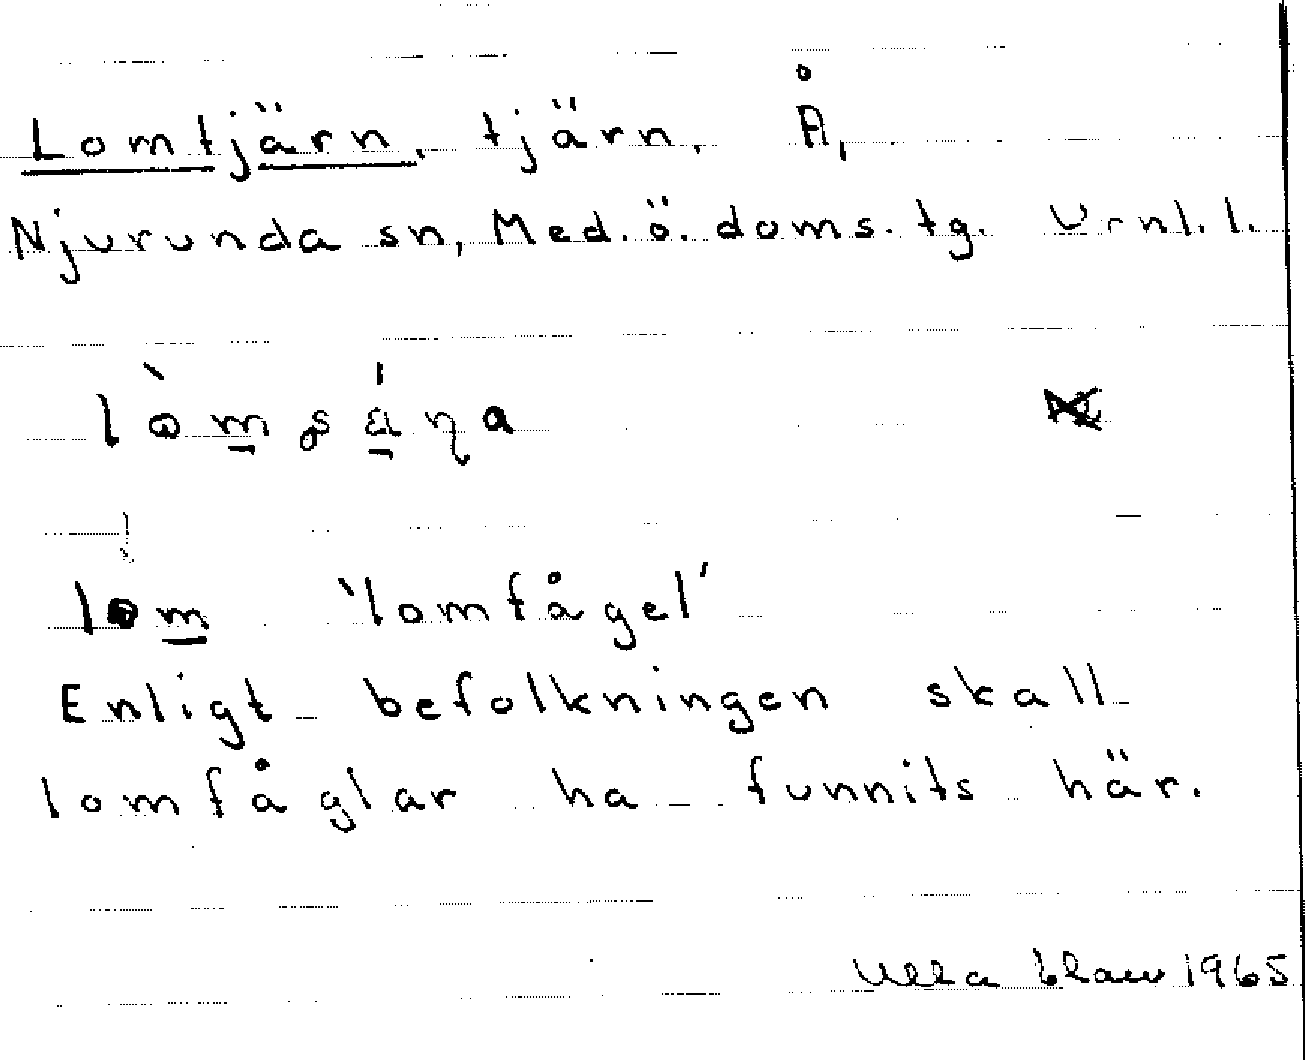 Lomtjärn, tjärn, Å,
Njurunda sn, Med. ö. doms. tg. Vrnl. l.
lòm̲ʂä̲́ɳa
lom̲ 'lomfågel'
Enligt befolkningen skall
lomfåglar ha funnits här.
Ulla 1965